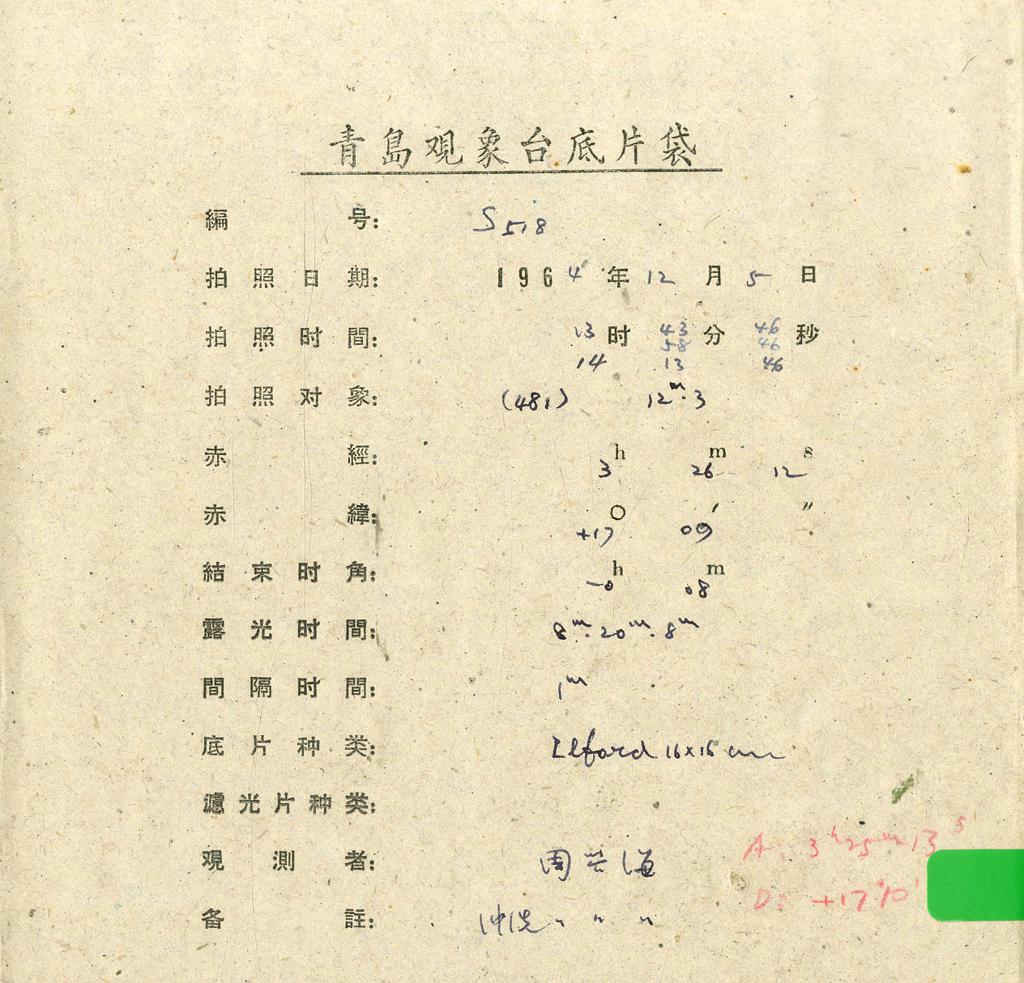 青島观象台底片袋
編号: S518
拍照日期: 1964年12月5日
拍照时間: 13时43分46秒
58 46
14 13 46
拍照对象: (481) 12ᵐ.3
赤經: 3ʰ 26ᵐ 12ˢ
赤緯: +17° 09′ ″
結束时角: -0ʰ 08ᵐ
露光时間: 8ᵐ. 20ᵐ. 8ᵐ
間隔时間: 1ᵐ
底片种类: Ilford 16×16 cm
濾光片种类:
观測者: 周兴海
A: 3ʰ25ᵐ13ˢ
D: +17°10′
备註: 冲洗 〃 〃 〃